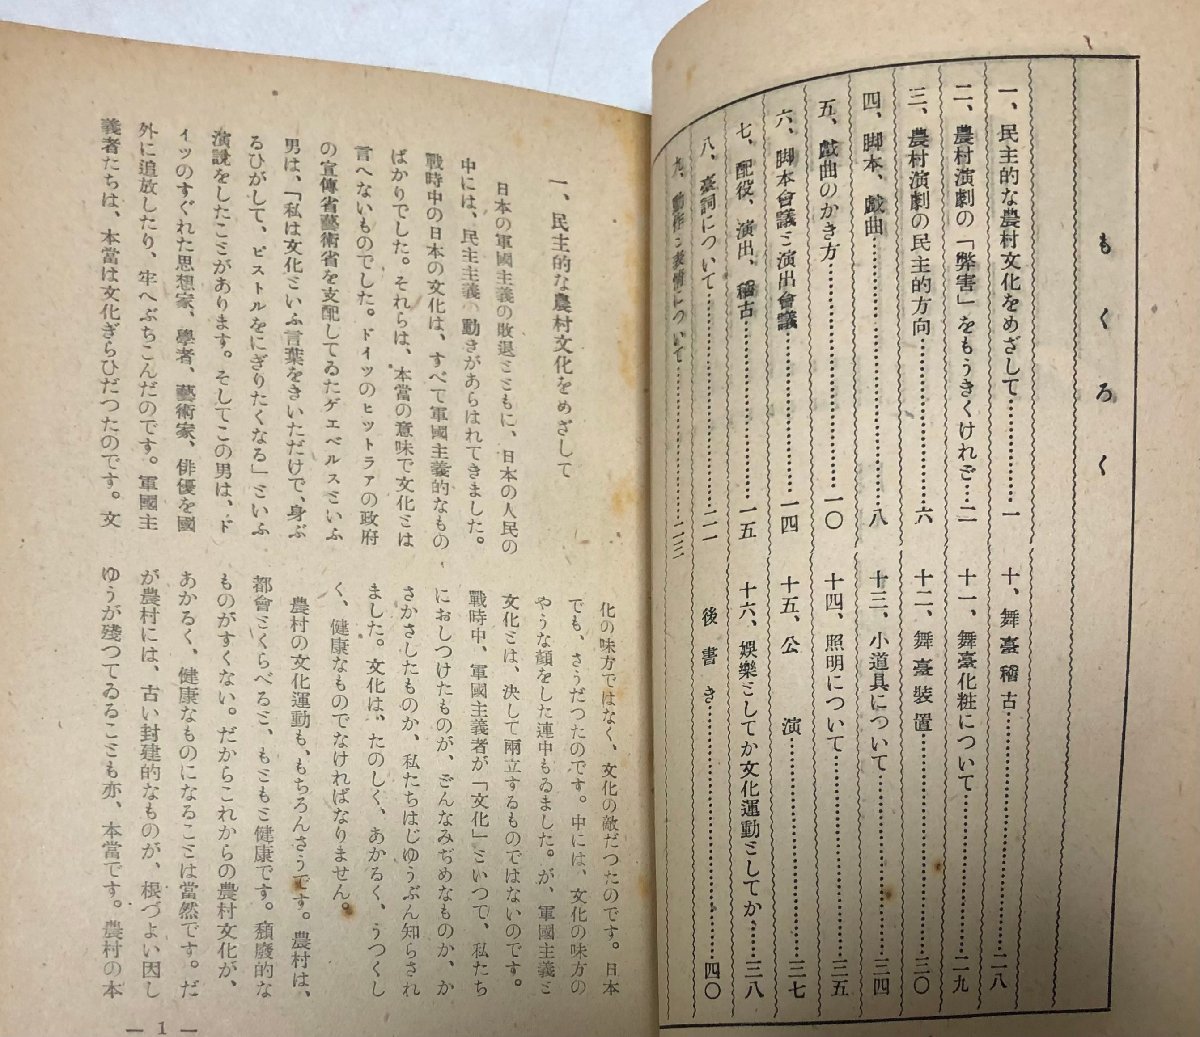 もくろく
一、民主的な農村文化をめざして…………一
二、農村演劇の「弊害」をもうきくけれど…二
三、農村演劇の民主的方向…………六
四、脚本、戯曲…………八
五、戯曲のかき方…………一〇
六、脚本會議と演出會議…………一四
七、配役、演出、稽古…………一五
八、臺詞について…………二一
九、動作と表情について…………二三
十、舞臺稽古…………二八
十一、舞臺化粧について…………二九
十二、舞臺裝置…………三〇
十三、小道具について…………三四
十四、照明について…………三五
十五、公演…………三七
十六、娯樂としてか文化運動としてか……三八
後書き…………四〇
一、民主的な農村文化をめざして
日本の軍國主義の敗退とともに、日本の人民の
中には、民主主義の動きがあらはれてきました。
戰時中の日本の文化は、すべて軍國主義的なもの
ばかりでした。それらは、本當の意味で文化とは
言へないものでした。ドイツのヒットラアの政府
の宣傳省藝術省を支配してゐたゲエベルスといふ
男は、「私は文化といふ言葉をきいただけで、身ぶ
るひがして、ピストルをにぎりたくなる」といふ
演說をしたことがあります。そしてこの男は、ド
イツのすぐれた思想家、學者、藝術家、俳優を國
外に追放したり、牢へぶちこんだのです。軍國主
義者たちは、本當は文化ぎらひだつたのです。文
化の味方ではなく、文化の敵だつたのです。日本
でも、さうだつたのです。中には、文化の味方の
やうな顔をした連中もゐました。が、軍國主義と
文化とは、決して兩立するものではないのです。
戰時中、軍國主義者が「文化」といつて、私たち
におしつけたものが、どんなみぢめなものか、か
さかさしたものか、私たちはじゆうぶん知らされ
ました。文化は、たのしく、あかるく、うつくし
く、健康なものでなければなりません。
農村の文化運動も、もちろんさうです。農村は、
都會とくらべると、もともと健康です。頽廢的な
ものがすくない。だからこれからの農村文化が、
あかるく、健康なものになることは當然です。だ
が農村には、古い封建的なものが、根づよい因し
ゆうが殘つてゐることも亦、本當です。農村の本
— 1 —